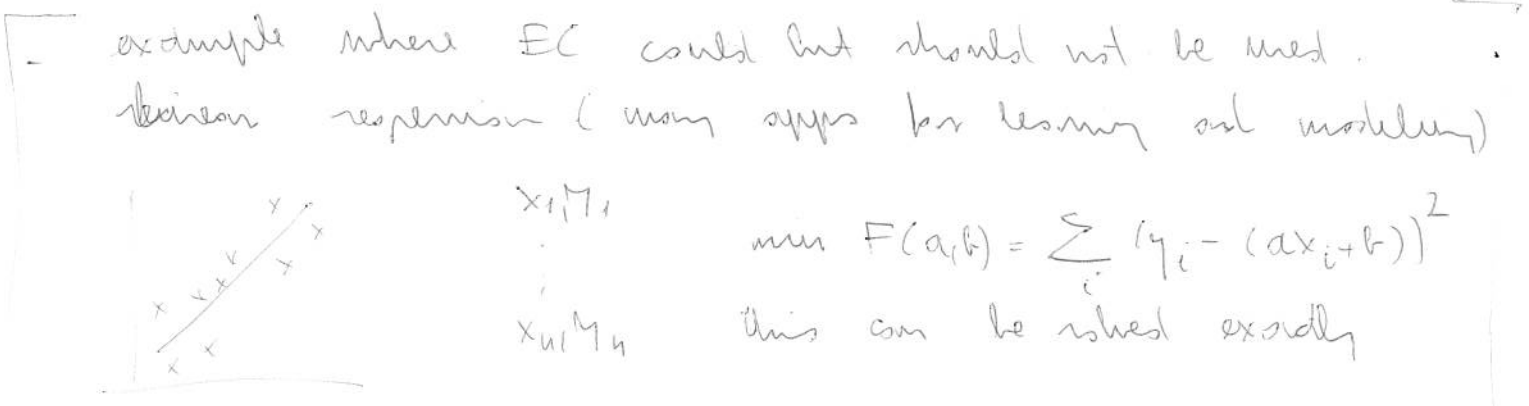 - example where EC could but should not be used.
linear regression (many apps for learning and modeling)
x₁,y₁
⋮
xₙ,yₙ
min F(a,b) = Σᵢ (yᵢ - (axᵢ+b))²
this can be solved exactly